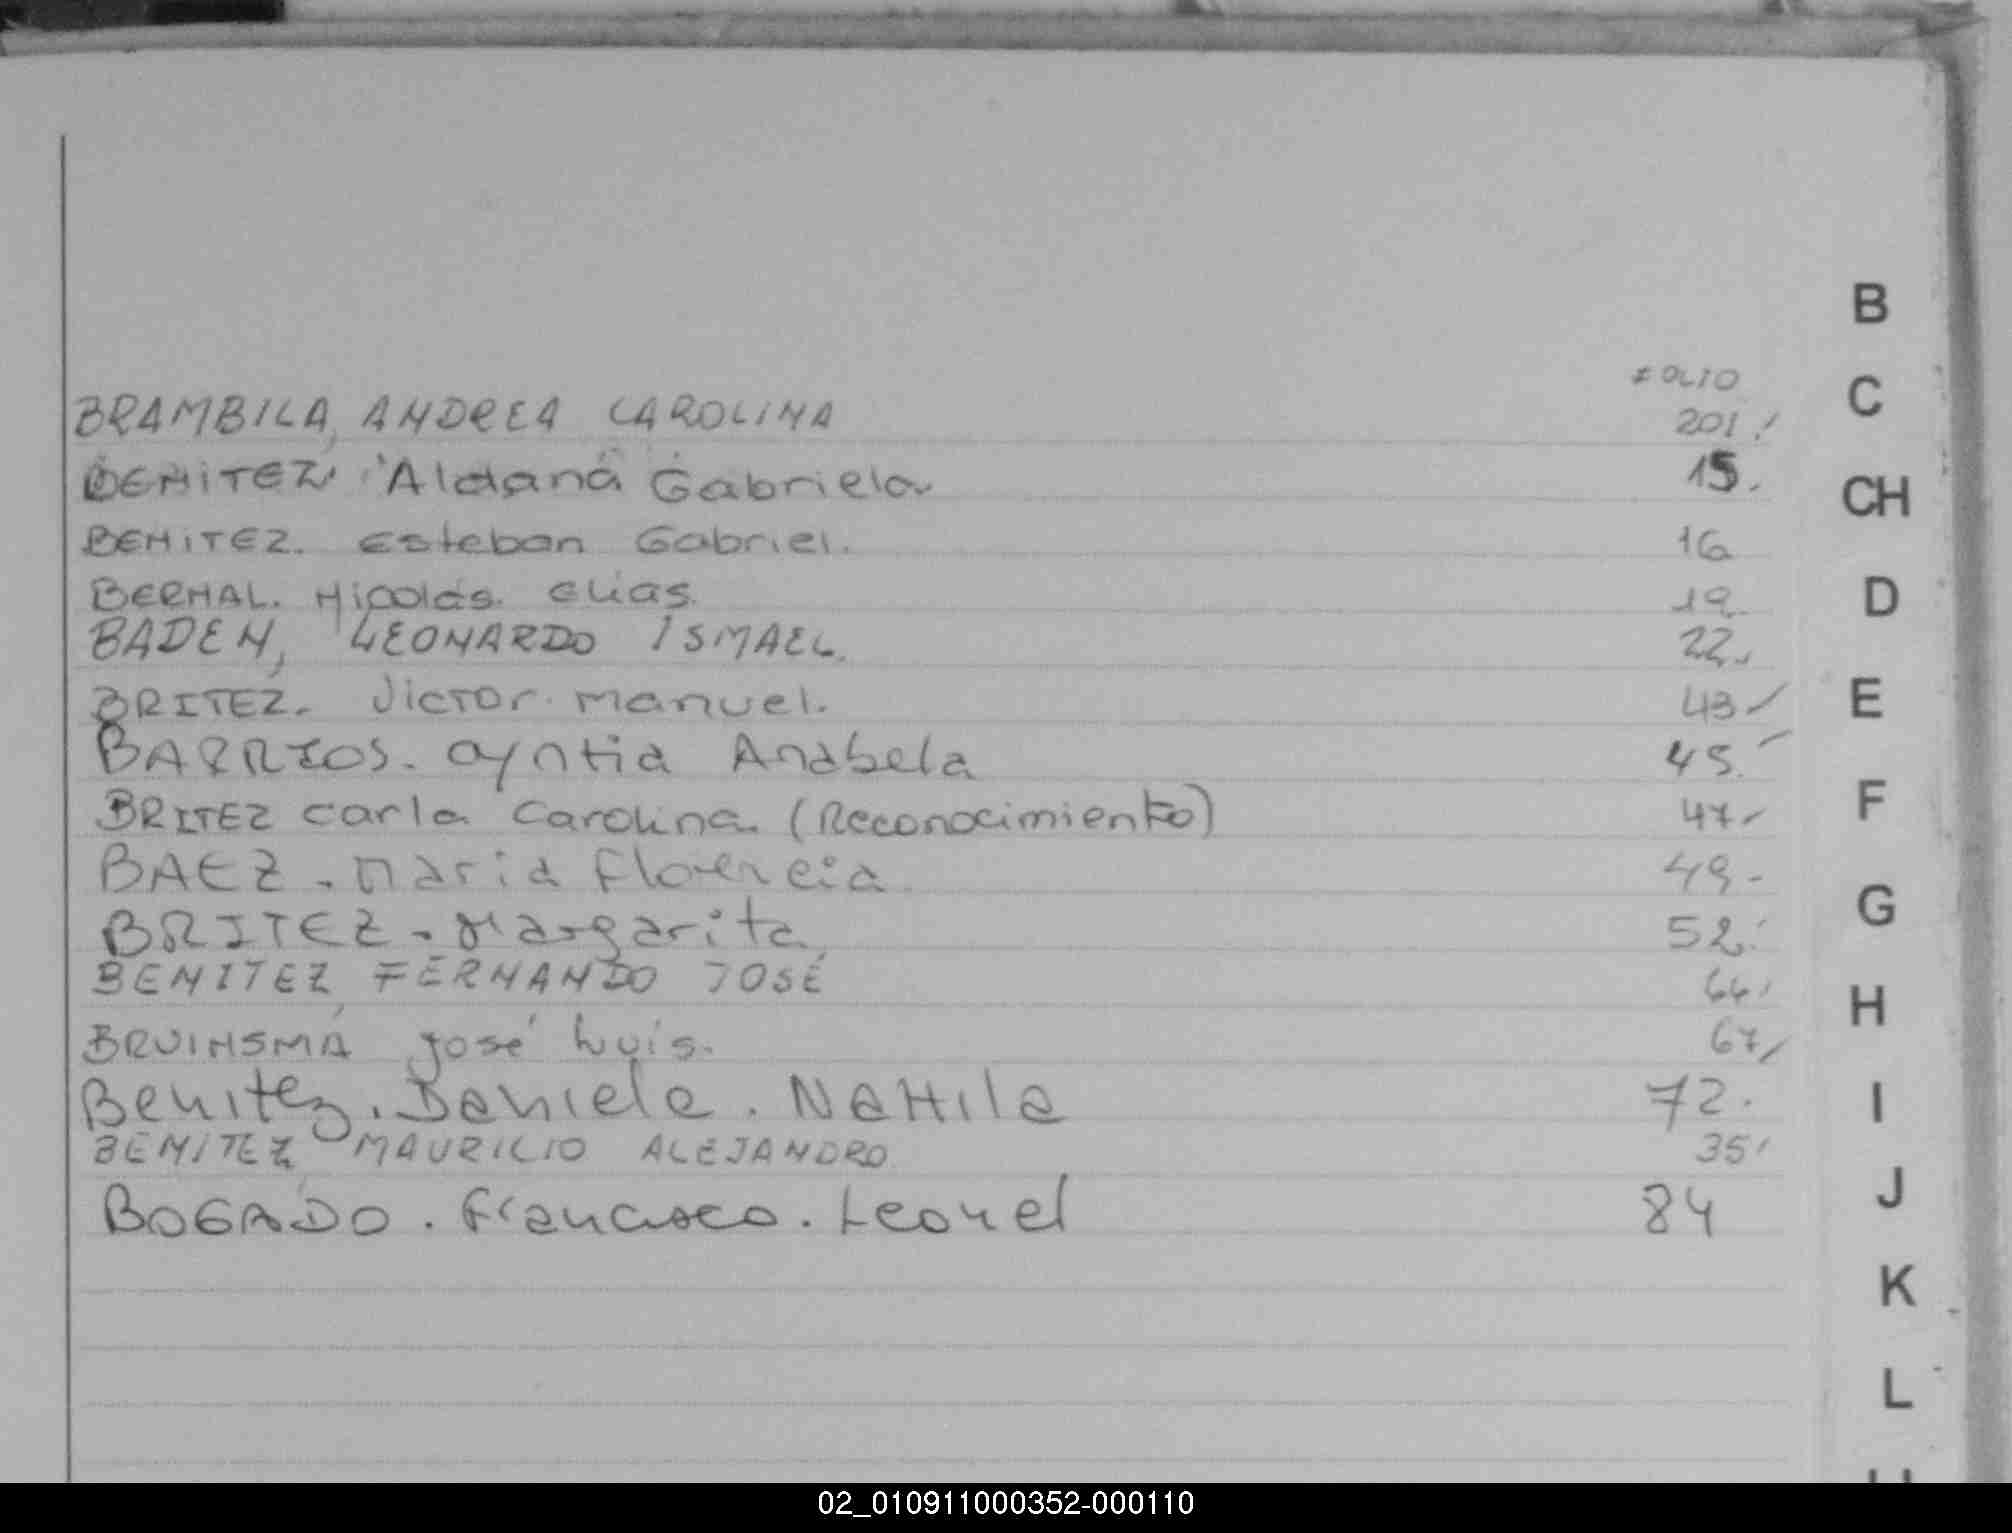 FOLIO
BRAMBILA, ANDREA CAROLINA 201
BENITEZ Aldana Gabriela 15.
BENITEZ. Esteban Gabriel. 16
BERNAL. Nicolás. Elias. 19
BADEN, LEONARDO ISMAEL. 22
BRITEZ. Victor. manuel. 43
BARRIOS. Cyntia Anabela 45.
BRITEZ Carla Carolina. (Reconocimiento) 47
BAEZ. Maria Florencia 49-
BRITEZ. Margarita 52
BENITEZ, FERNANDO JOSÉ
BRUINSMA José Luis. 67
Benitez. Daniela. 72.
BENITEZ, MAURILIO ALEJANDRO 35
BOGADO. Francisco. Leonel 84
B
C
CH
D
E
F
G
H
I
J
K
L
02_010911000352-000110